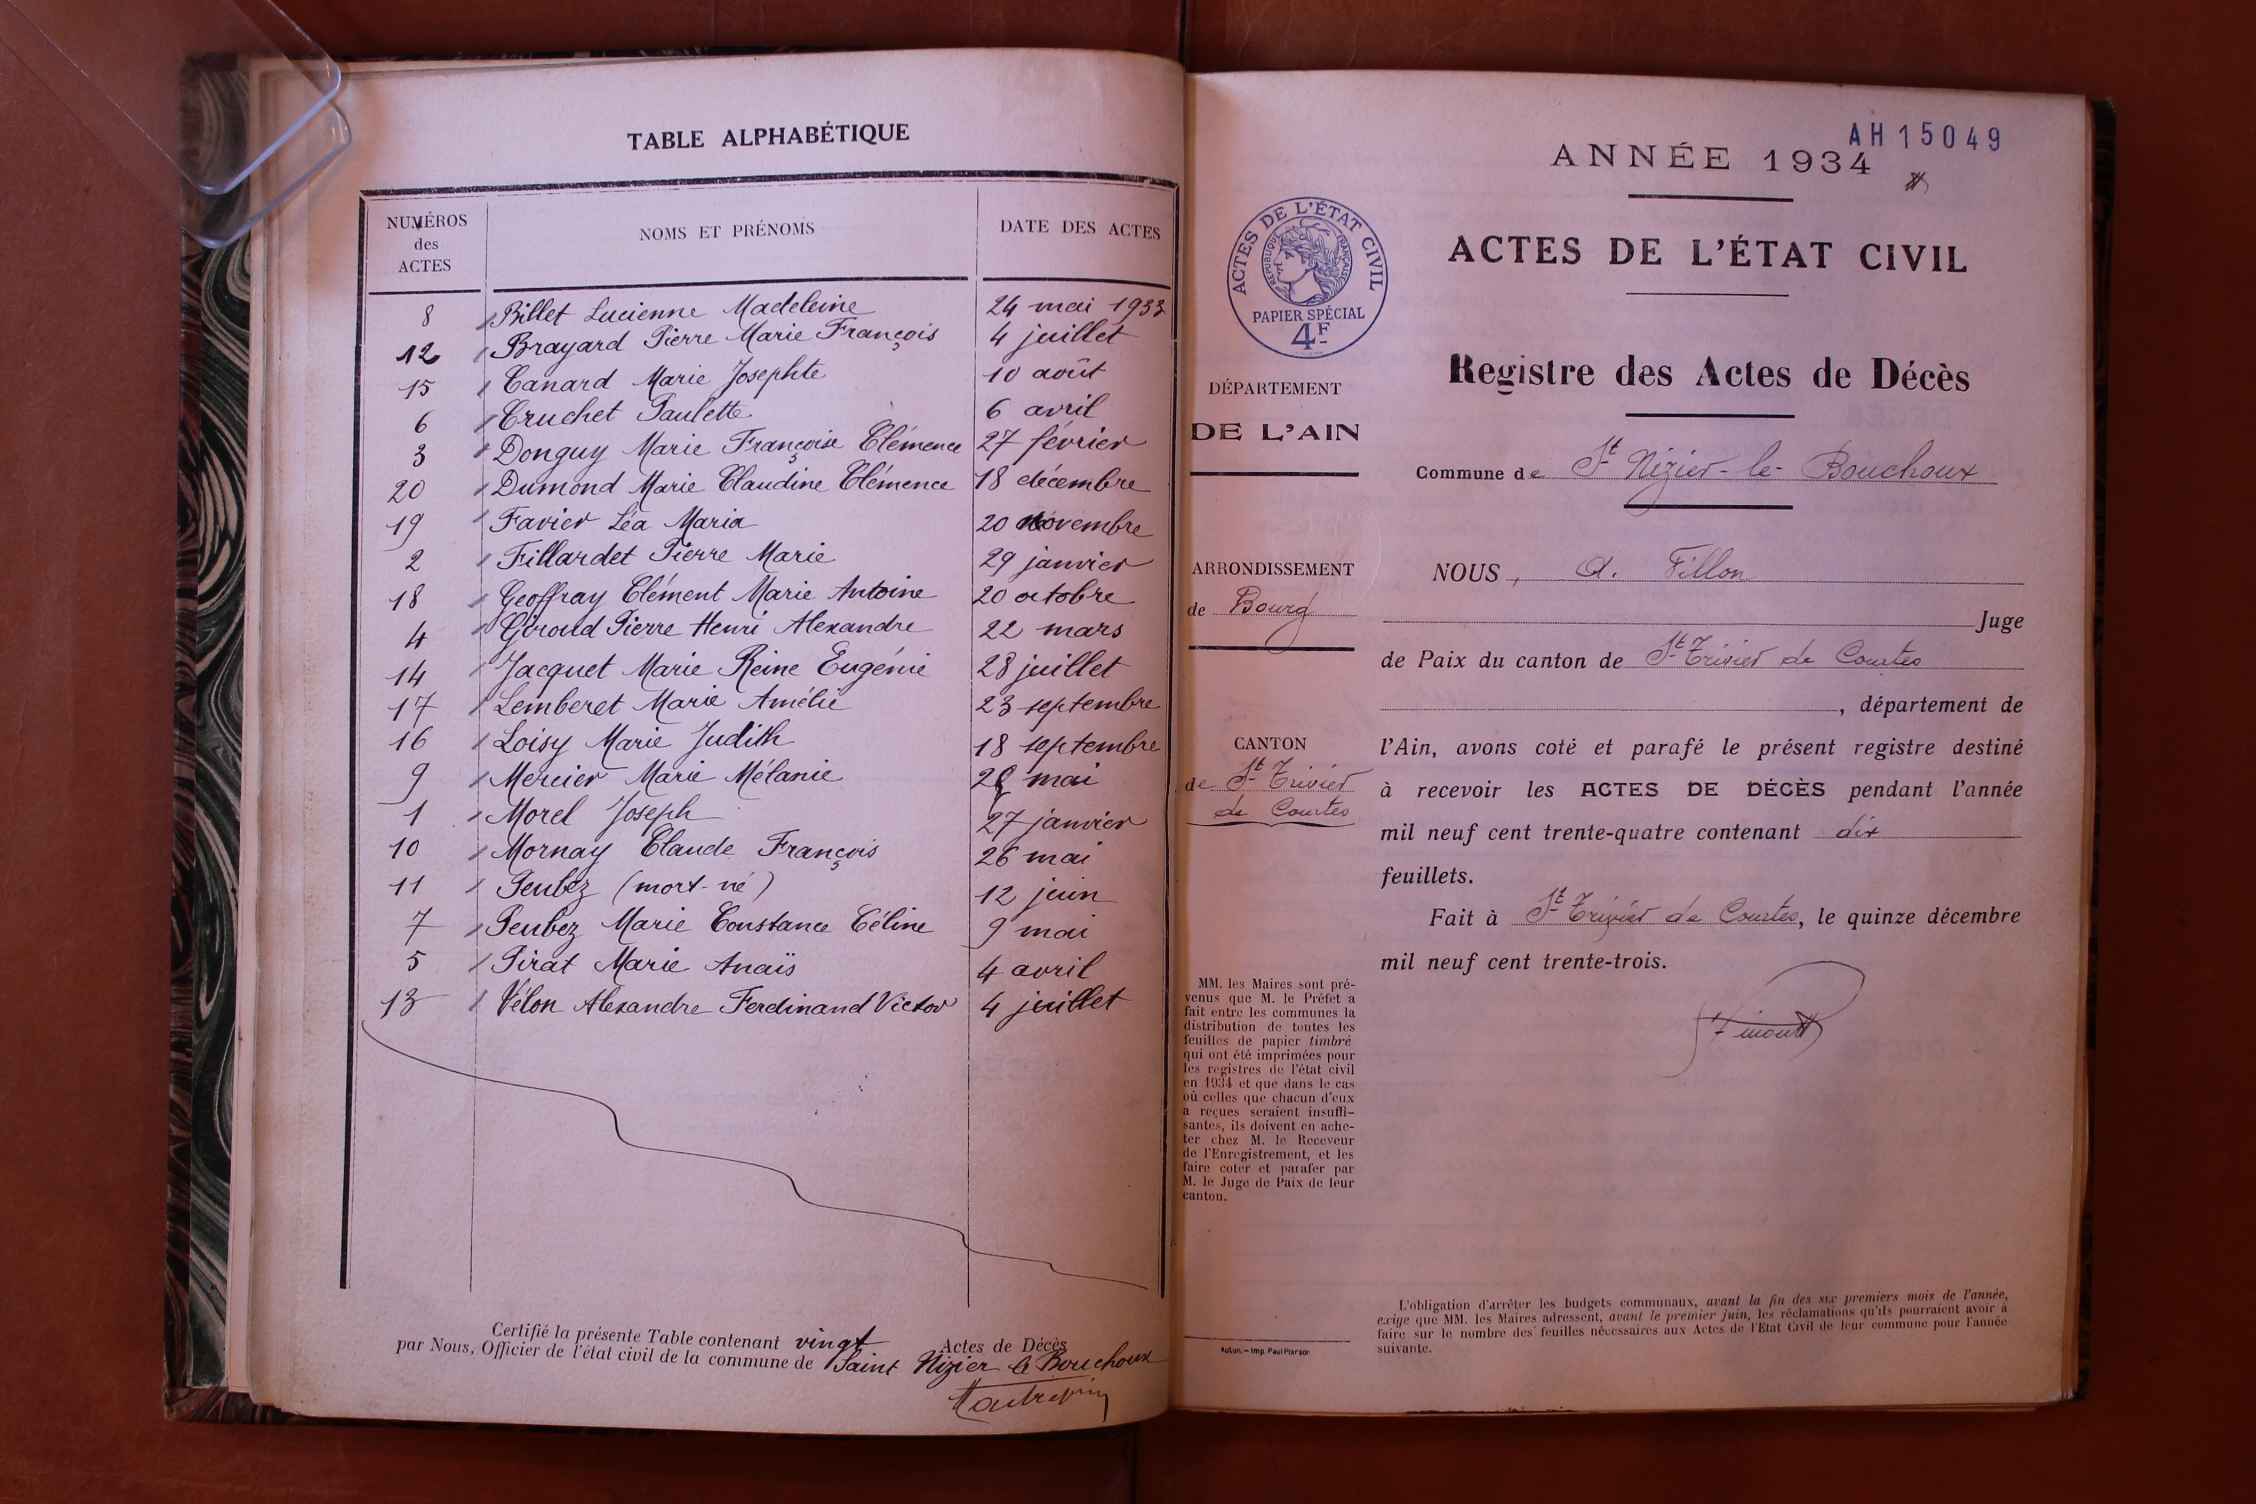 TABLE ALPHABÉTIQUE
NUMÉROS des ACTES NOMS ET PRÉNOMS DATE DES ACTES
8 Billet Lucienne Madeleine 24 mai 1933
12 Brayard Pierre Marie François 4 juillet
15 Canard Marie Josephte 10 août
6 Cruchet Paulette 6 avril
3 Donguy Marie Françoise Clémence 27 février
20 Dumond Marie Claudine Clémence 18 décembre
19 Favier Léa Maria 20 novembre
2 Fillardet Pierre Marie 29 janvier
18 Geoffray Clément Marie Antoine 20 octobre
4 Giroud Pierre Henri Alexandre 22 mars
14 Jacquet Marie Reine Eugénie 28 juillet
17 Lemberet Marie Amélie 23 septembre
16 Loisy Marie Judith 18 septembre
9 Mercier Marie Mélanie mai
1 Morel Joseph 27 janvier
10 Mornay Claude François 26 mai
11 Peubez (mort-né) 12 juin
7 Peubez Marie Constance Céline 9 mai
5 Pirat Marie Anaïs 4 avril
13 Vélon Alexandre Ferdinand Victor 4 juillet
Certifié la présente Table contenant vingt Actes de Décès
par Nous, Officier de l'état civil de la commune de Saint Nizier le Bouchoux
AH15049
ANNÉE 1934
ACTES DE L'ÉTAT CIVIL
RÉPUBLIQUE FRANÇAISE
PAPIER SPÉCIAL
4F
ACTES DE L'ÉTAT CIVIL
Registre des Actes de Décès
DÉPARTEMENT
DE L'AIN
Commune de St Nizier-le-Bouchoux
ARRONDISSEMENT
de Bourg
CANTON
de St Trivier
de Courtes
NOUS, A. Fillon
Juge
de Paix du canton de St Trivier de Courtes
, département de
l'Ain, avons coté et parafé le présent registre destiné
à recevoir les ACTES DE DÉCÈS pendant l'année
mil neuf cent trente-quatre contenant dix
feuillets.
Fait à St Trivier de Courtes, le quinze décembre
mil neuf cent trente-trois.
MM. les Maires sont pré-
venus que M. le Préfet a
fait entre les communes la
distribution de toutes les
feuilles de papier timbré
qui ont été imprimées pour
les registres de l'état civil
en 1934 et que dans le cas
où celles que chacun d'eux
a reçues seraient insuffi-
santes, ils doivent en ache-
ter chez M. le Receveur
de l'Enregistrement, et les
faire coter et parafer par
M. le Juge de Paix de leur
canton.
Autun. — Imp. Paul Pernon
L'obligation d'arrêter les budgets communaux, avant la fin des six premiers mois de l'année,
exige que MM. les Maires adressent, avant le premier juin, les réclamations qu'ils pourraient avoir à
faire sur le nombre des feuilles nécessaires aux Actes de l'État Civil de leur commune pour l'année
suivante.